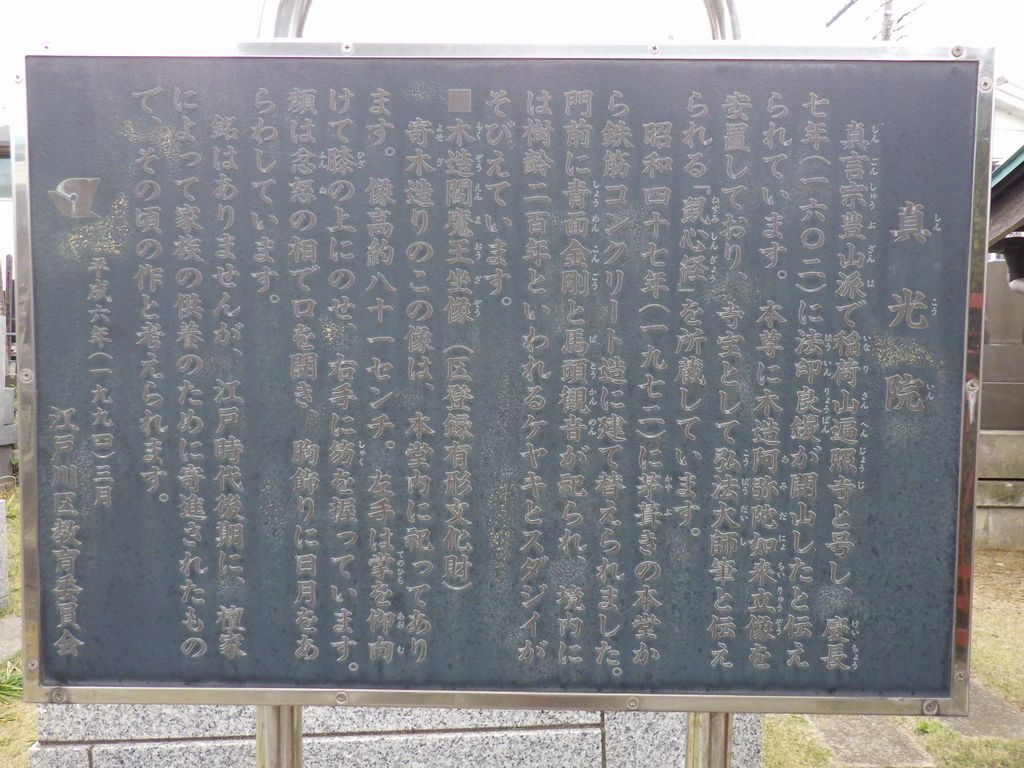 真光院
真言宗豊山派で稲荷山遍照寺と号し、慶長
七年(一六〇二)に法印良鑁が開山したと伝え
られています。本尊に木造阿弥陀如来立像を
安置しており、寺宝として弘法大師筆と伝え
られる「鼠心経」を所蔵しています。
昭和四十七年(一九七二)に茅葺きの本堂か
ら鉄筋コンクリート造に建て替えられました。
門前に青面金剛と馬頭観音が祀られ、境内に
は樹齢二百年といわれるケヤキとスダジイが
そびえています。
■木造閻魔王坐像(区登録有形文化財)
寄木造りのこの像は、本堂内に祀ってあり
ます。像高約八十一センチ。左手は掌を仰向
けて膝の上にのせ、右手に笏を握っています。
顔は忿怒の相で口を開き、胸飾りに日月をあ
らわしています。
銘はありませんが、江戸時代後期に、檀家
によって家族の供養のために寄進されたもの
で、その頃の作と考えられます。
平成六年(一九九四)三月
江戸川区教育委員会